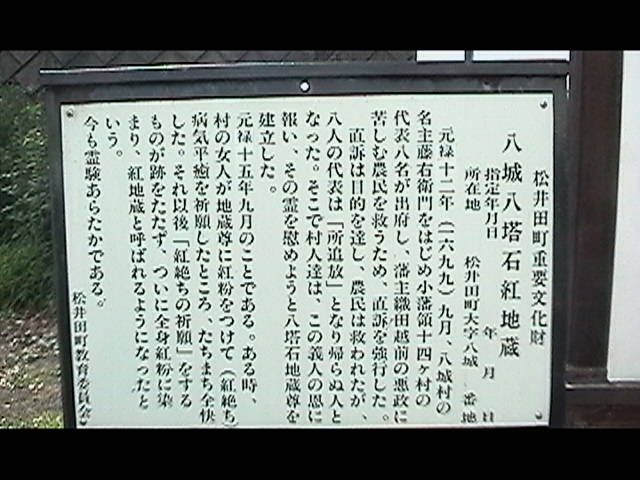 松井田町重要文化財
八城八塔石紅地蔵
指定年月日　　年　月　日
所在地　松井田町大字八城　番地
元禄十二年（一六九九）九月、八城村の
名主藤右衛門をはじめ小藩領十四ヶ村の
代表八名が出府し、藩主織田越前の悪政に
苦しむ農民を救うため、直訴を強行した。
直訴は目的を達し、農民は救われたが、
八人の代表は「所追放」となり帰らぬ人と
なった。そこで村人達は、この義人の恩に
報い、その霊を慰めようと八塔石地蔵尊を
建立した。
元禄十五年九月のことである。ある時、
村の女人が地蔵尊に紅粉をつけて（紅絶ち）
病気平癒を祈願したところ、たちまち全快
した。それ以後「紅絶ちの祈願」をする
ものが跡をたたず、ついに全身紅粉に染
まり、紅地蔵と呼ばれるようになったと
いう。
今も霊験あらたかである。
松井田町教育委員会